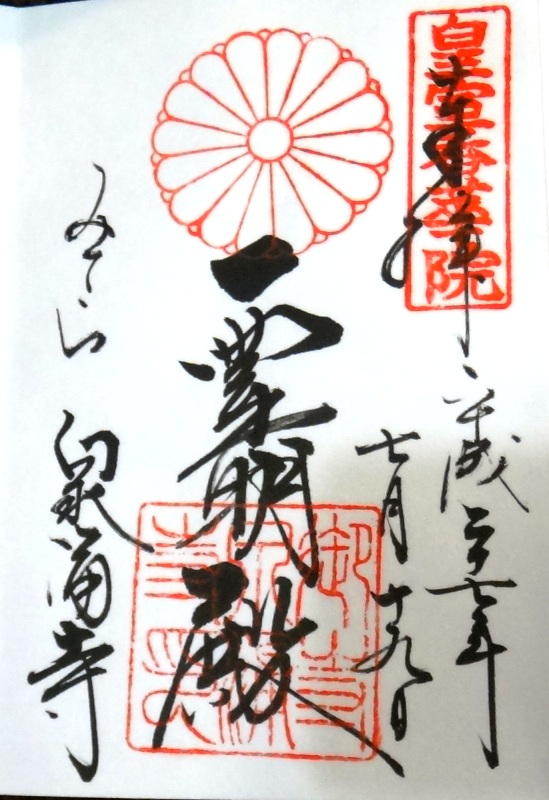 皇室香華院
奉拝
平成二十七年
七月十九日
霊明殿
みてら
泉涌寺